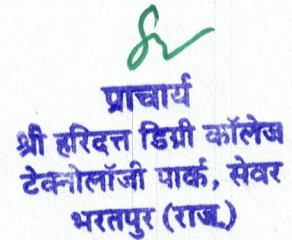 प्राचार्य
श्री हरिदत्त डिग्री कॉलेज
टेक्नोलॉजी पार्क, सेवर
भरतपुर (राज.)